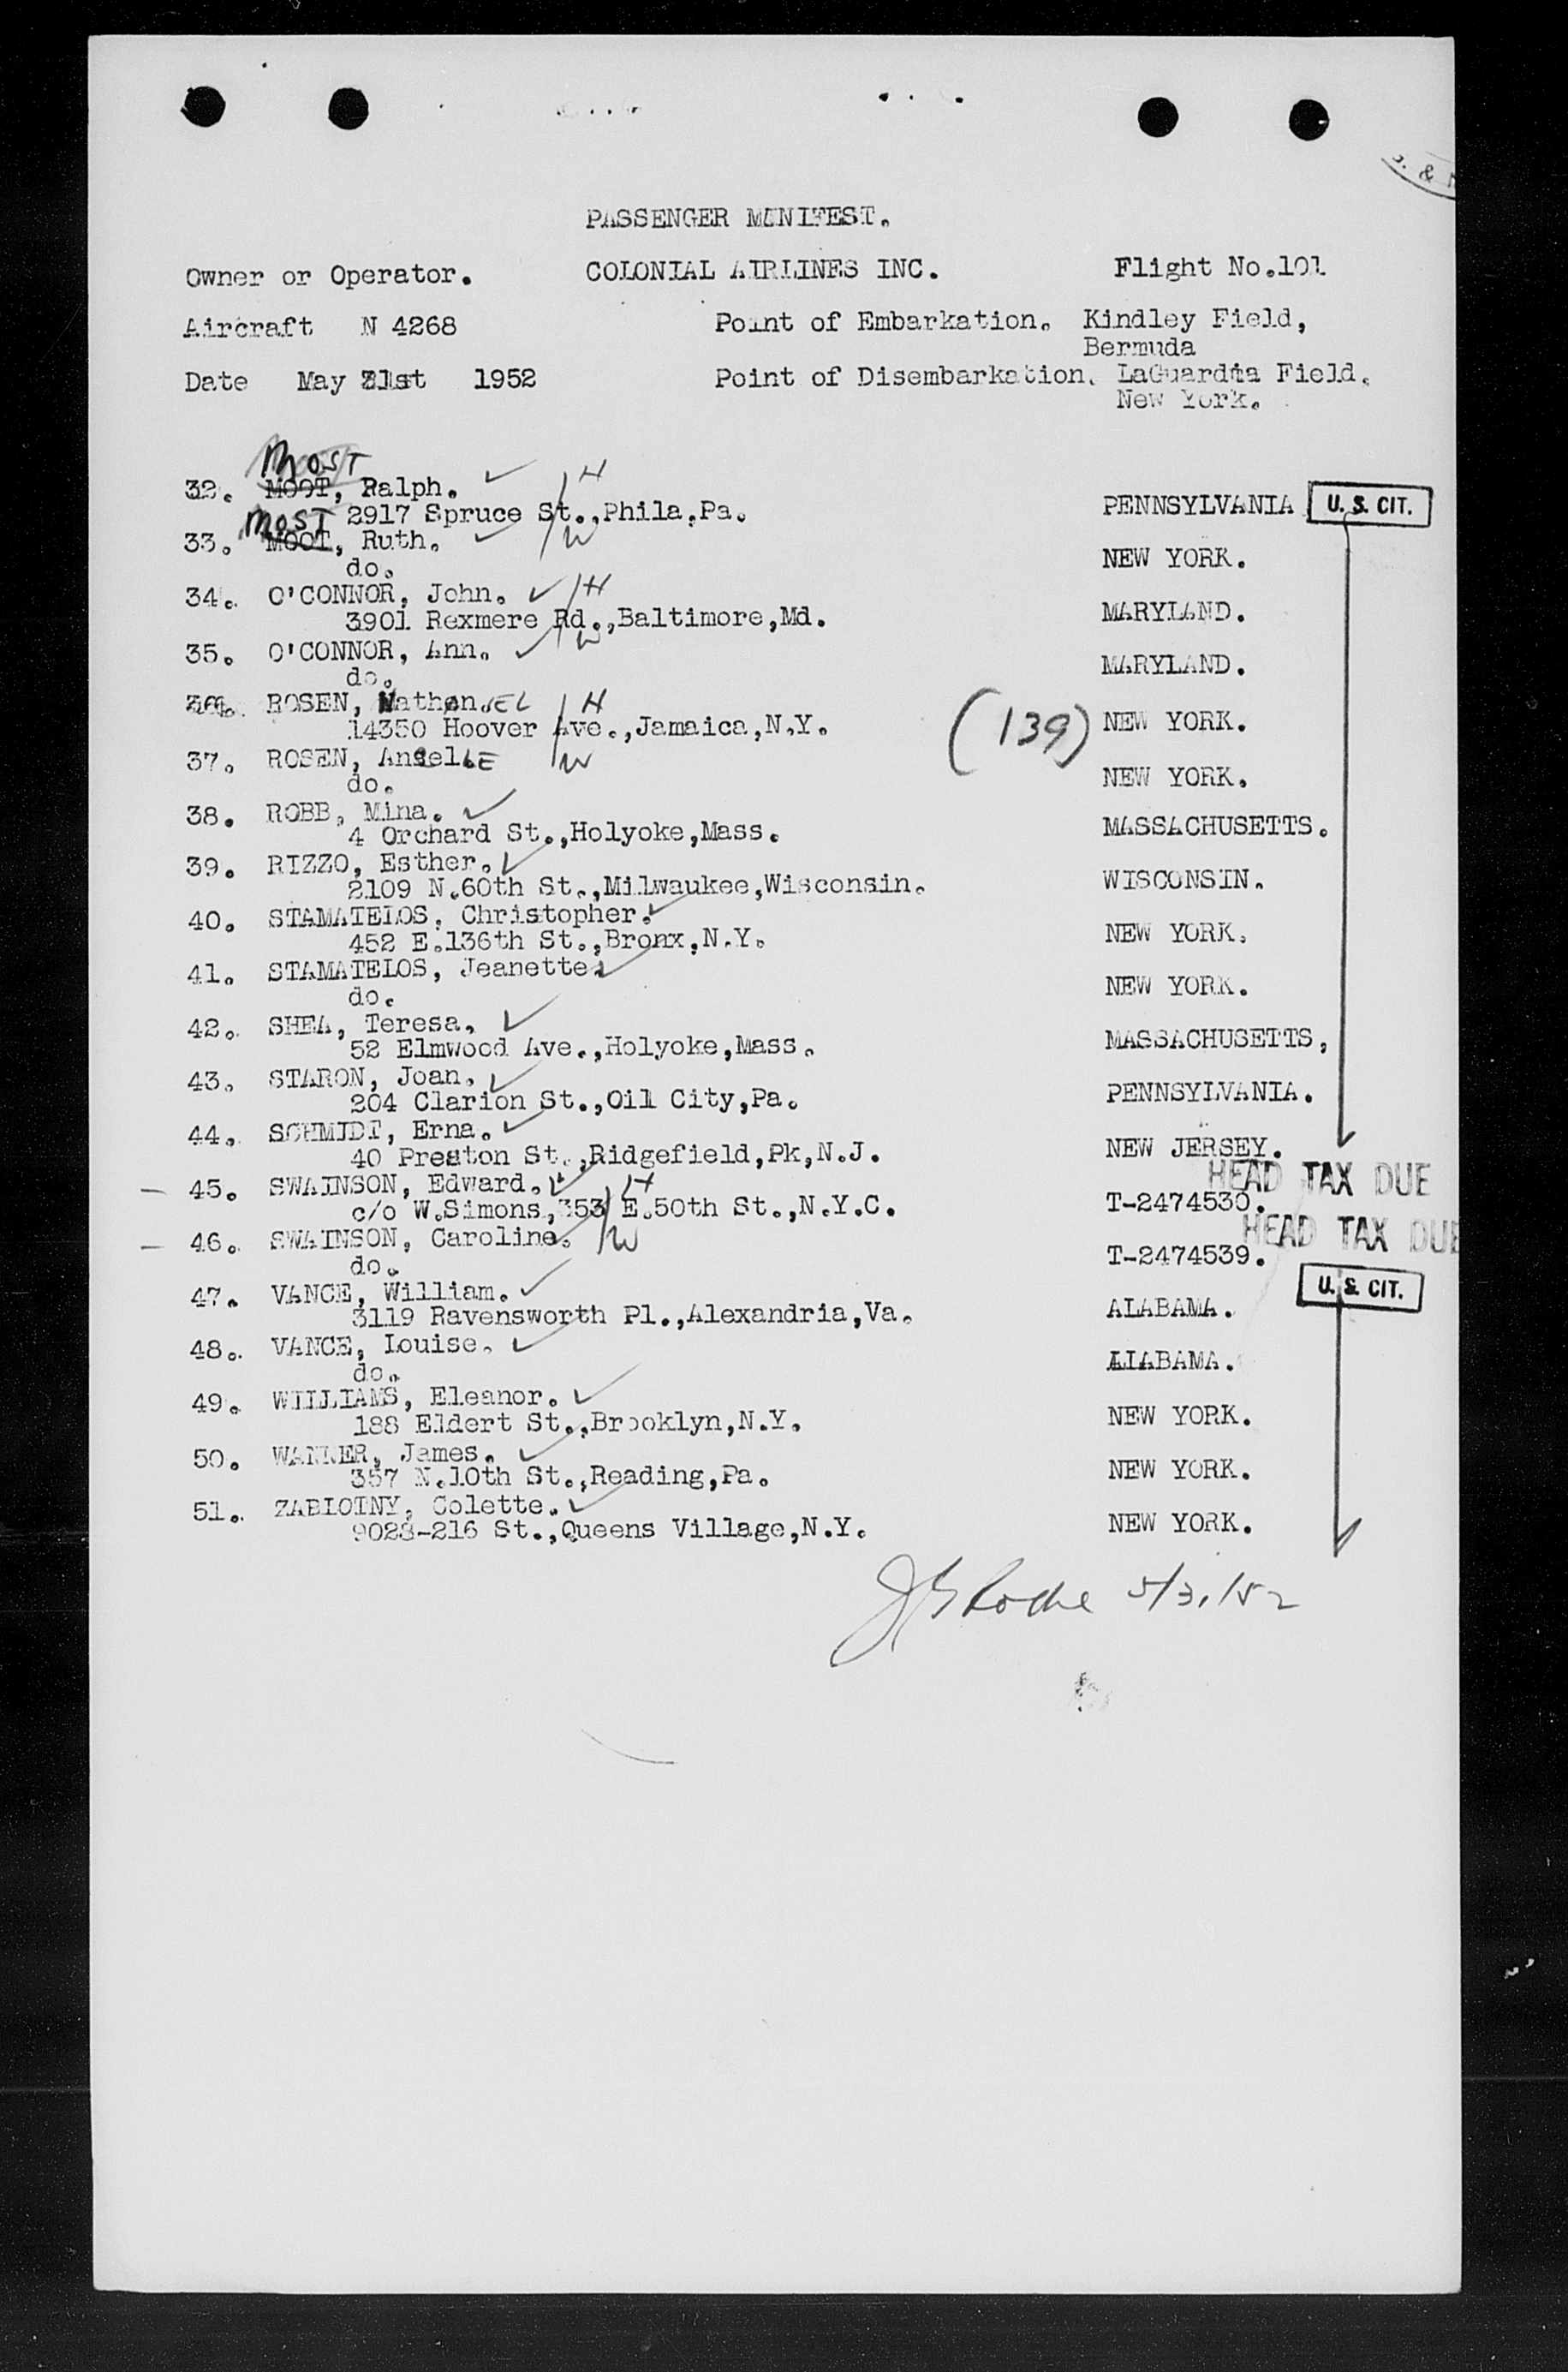 S. & N
PASSENGER MANIFEST.
Owner or Operator. COLONIAL AIRLINES INC. Flight No.101
Aircraft N 4268 Point of Embarkation. Kindley Field,
Bermuda
Date May 31st 1952 Point of Disembarkation. LaGuardia Field.
New York.
MOST
32. MOOT, Ralph. ✓ H
2917 Spruce St.,Phila.Pa. PENNSYLVANIA U.S. CIT.
MOST
33. MOOT, Ruth. ✓ W
do. NEW YORK.
34. O'CONNOR, John. ✓ H
3901 Rexmere Rd.,Baltimore,Md. MARYLAND.
35. O'CONNOR, Ann. ✓ W
do. MARYLAND.
36. ROSEN, Nathaniel H
14350 Hoover Ave.,Jamaica,N.Y. (139) NEW YORK.
37. ROSEN, AnselLE W
do. NEW YORK.
38. ROBB, Mina. ✓
4 Orchard St.,Holyoke,Mass. MASSACHUSETTS.
39. RIZZO, Esther. ✓
2109 N.60th St.,Milwaukee,Wisconsin. WISCONSIN.
40. STAMATELOS, Christopher. ✓
452 E.136th St.,Bronx,N.Y. NEW YORK.
41. STAMATELOS, Jeanette. ✓
do. NEW YORK.
42. SHEA, Teresa. ✓
52 Elmwood Ave.,Holyoke,Mass. MASSACHUSETTS.
43. STARON, Joan. ✓
204 Clarion St.,Oil City,Pa. PENNSYLVANIA.
44. SCHMIDT, Erna. ✓
40 Preston St.,Ridgefield,Pk,N.J. NEW JERSEY.
HEAD TAX DUE
— 45. SWAINSON, Edward. ✓ H
c/o W.Simons,353 E.50th St.,N.Y.C. T-2474530.
HEAD TAX DUE
— 46. SWAINSON, Caroline. ✓ W
do. T-2474539.
47. VANCE, William. ✓ U.S. CIT.
3119 Ravensworth Pl.,Alexandria,Va. ALABAMA.
48. VANCE, Louise. ✓
do. ALABAMA.
49. WILLIAMS, Eleanor. ✓
188 Eldert St.,Brooklyn,N.Y. NEW YORK.
50. WANNER, James. ✓
357 N.10th St.,Reading,Pa. NEW YORK.
51. ZABLOTNY, Colette. ✓
9023-216 St.,Queens Village,N.Y. NEW YORK.
5/31/52